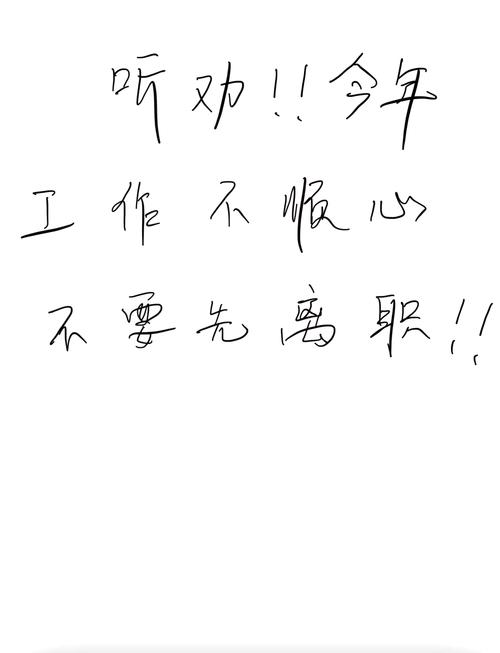 听劝!!今年
工作不顺心
不要先离职!!